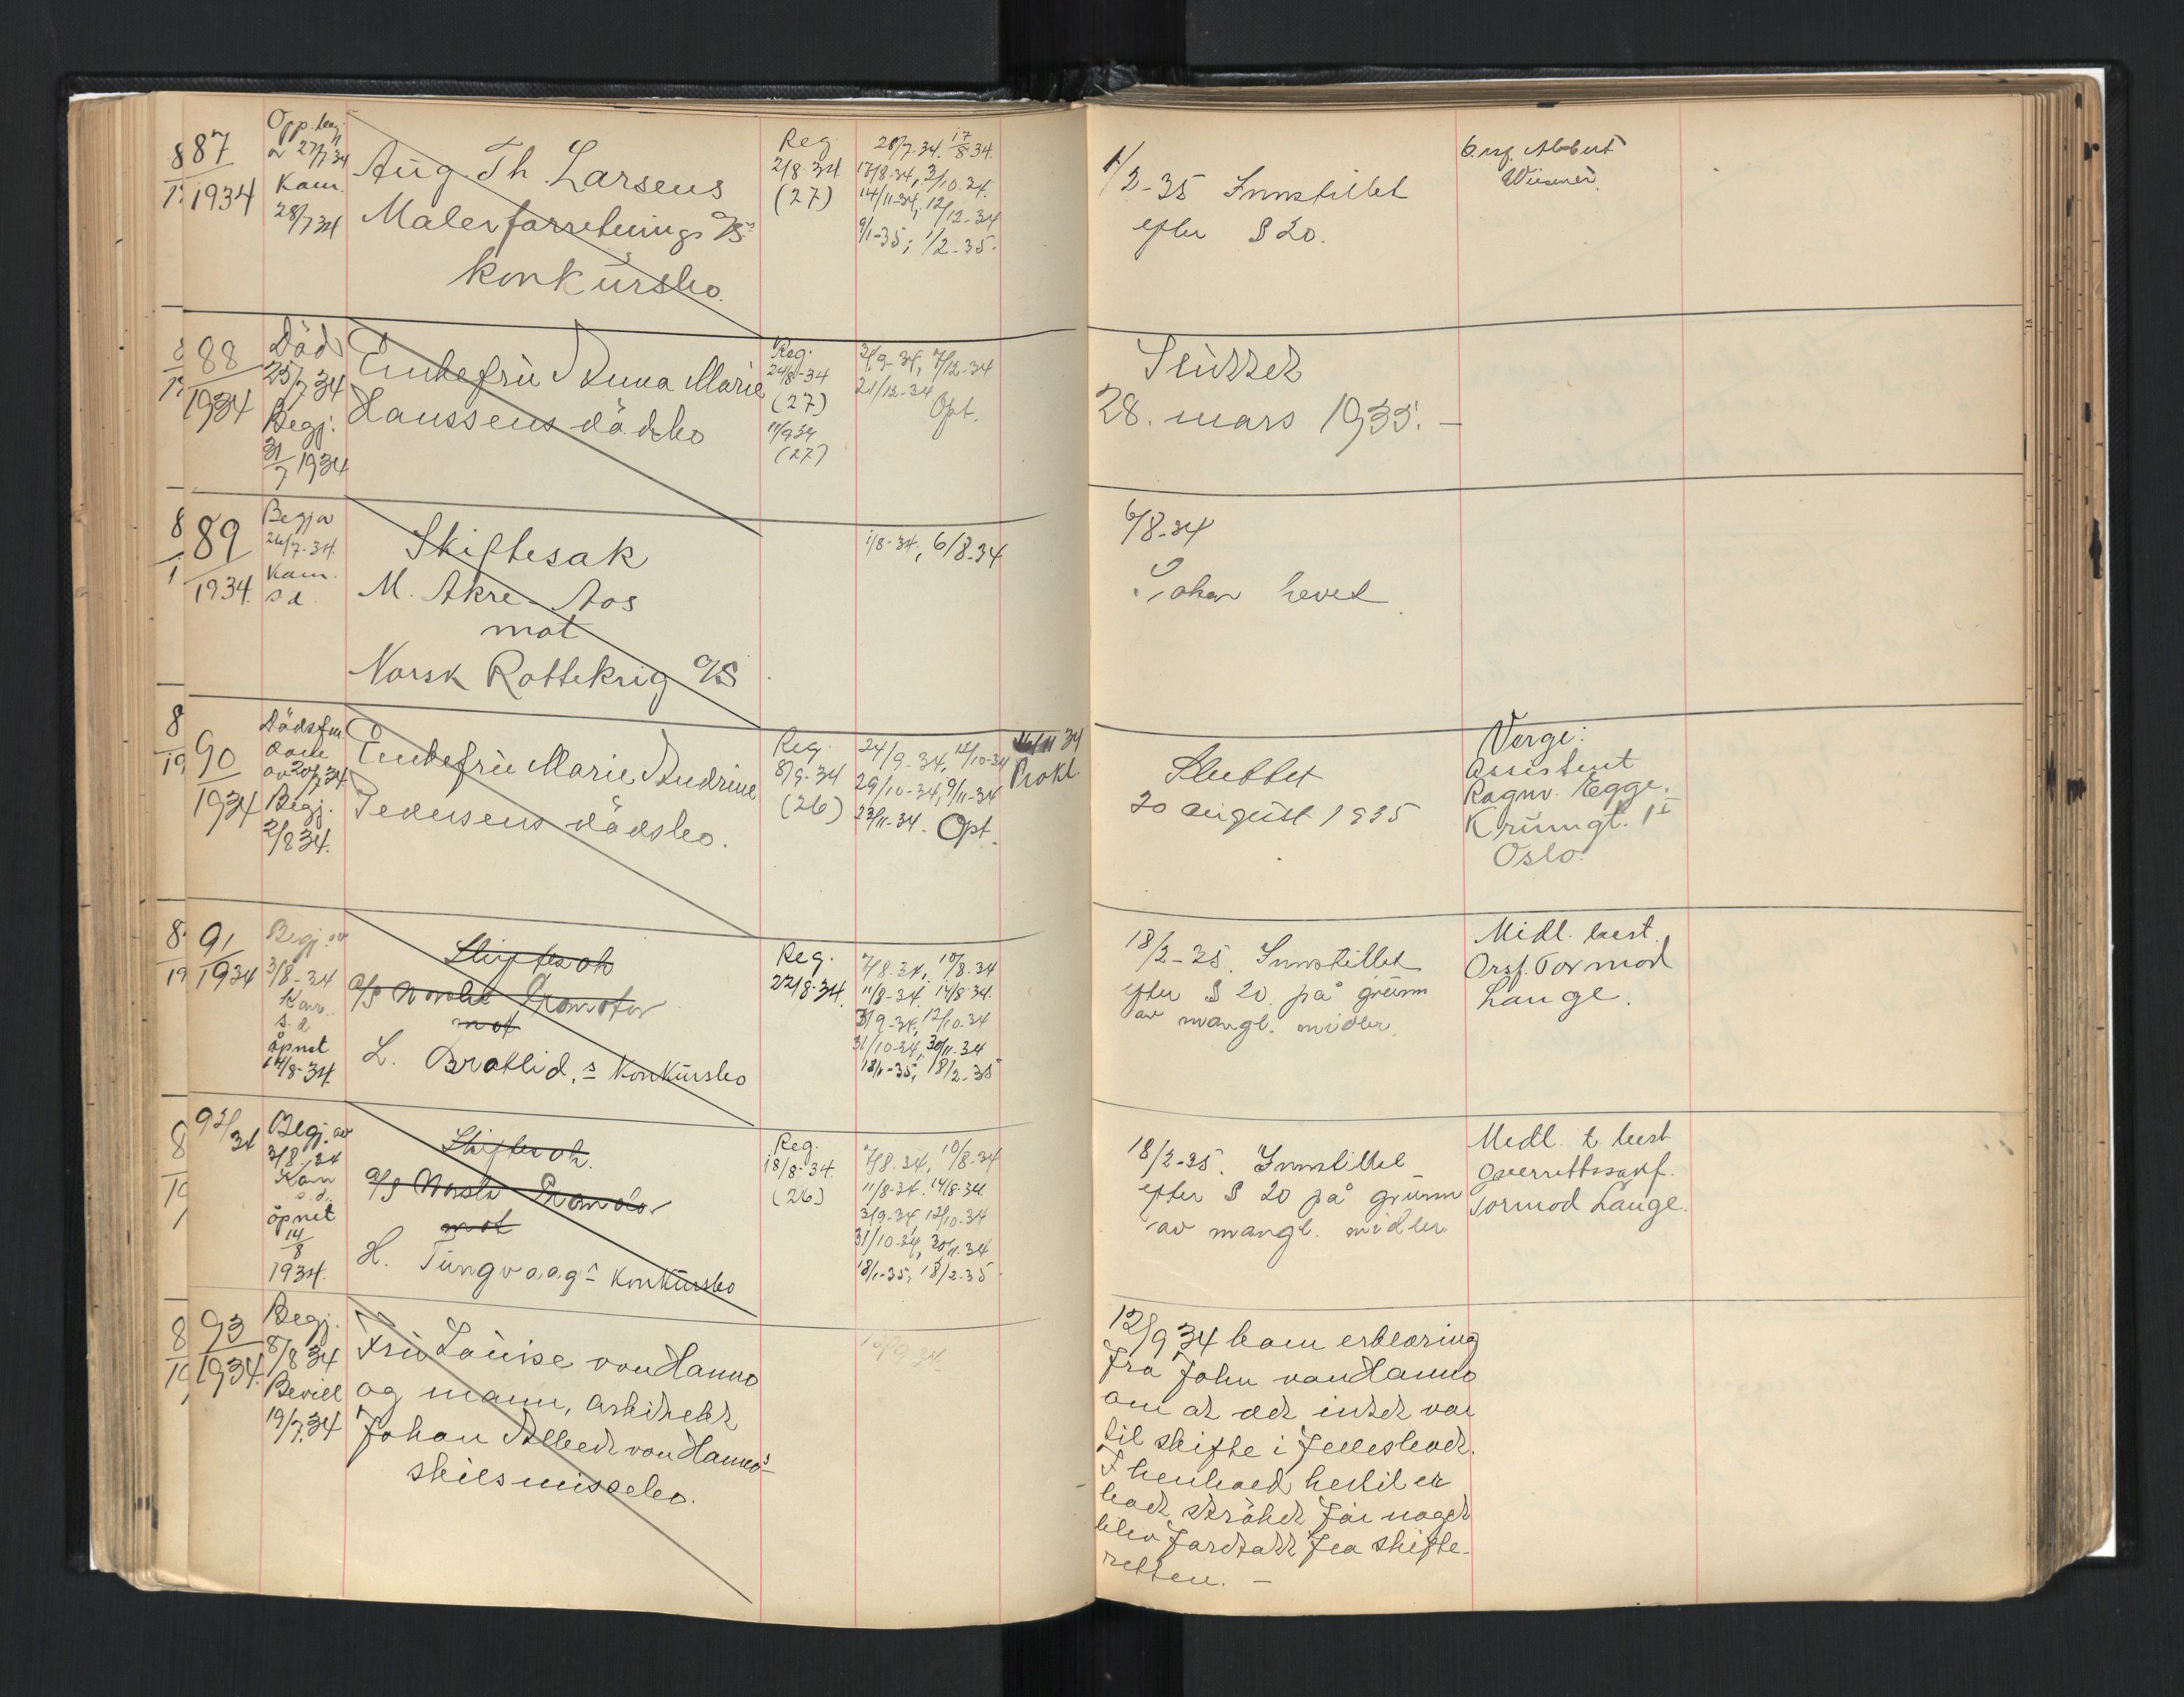 87
1934
Opp. beg.
27/7 34
Kam.
28/7 34
Aug. Th. Larsens
Malerforretnings A/S
konkursbo.
Reg.
2/8 34
(27)
28/7. 34. 17/8 34.
17/8-34, 3/10. 34.
14/11-34, 12/12-34
9/1-35; 1/2-35.
1/2-35 Innstillet
efter § 20.
Albert
88
1934
Död
25/7 34
Begj:
31/7 1934
Enkefrü Anna Marie
Hanssens dödsbo
Reg.
24/8-34
(27)
11/9 34
(27)
7/12-34
21/12-34
Opt.
Sluttet
28. mars 1935. —
89
1934.
Begj av
Kam.
s d.
Skiftesak
M. Akre-Aos
mot
Norsk Rottekrig A/S
1/8-34, 6/8-34
6/8-34
Saken hevet
90
1934
av 20/7 34
Begj.
2/8 34.
Enkefrü Marie Andrine
Pedersens dödsbo.
Reg.
8/9-34
(26)
24/9-34, 12/10-34
29/10-34, 9/11-34
23/11-34. Opt.
Prokl.
Sluttet
20 august 1935
Verge:
Assistent
Ragnv. Egge.
Krumgt. 1 I
Oslo.
91
1934
Begj. av
3/8-34
Kam.
s. d
åpnet
14/8-34.
Skiftesak
A/S Norsk Promotor
mot
L. Bratlid,s Konkursbo
Reg.
22/8-34.
7/8.34, 10/8.34
11/8-34. 14/8 34.
3/9-34, 12/10-34
31/10-34, 30/11.34
18/1-35, 18/2-35
18/2-35. Innstillet
efter § 20. på grunn
av mangl. midler.
Midl. best.
Orsf. Tormod
Lange.
92/34
Begj. av
3/8-34
Kam
s. d.
åpnet
14/8
1934.
Skiftesak.
A/S Norsk Promotor
mot
H. Tungvaag's Konkursbo
Reg.
18/8-34.
(26)
7/8.34, 10/8-34
11/8-34. 14/8-34.
3/9-34, 12/10-34
31/10-34, 30/11-34
18/1-35, 18/2-35
18/2-35. Innstillet
efter § 20 på grunn
av mangl. midler.
Midl. t. best
Overrettssakf.
Tormod Lange.
93
1934.
Begj.
8/8 34
Bevill
19/7.34
Frü Louise von Hanno
og mann, arkitekt
Johan Albert von Hanno's
skilsmissebo.
12/9 34.
12/9 34 kom erklæring
fra John von Hanno
om at det intet var
til skifte i fellesboet.
I henhold hertil er
boet ströket før noget
blev foretatt fra skifte-
retten. —